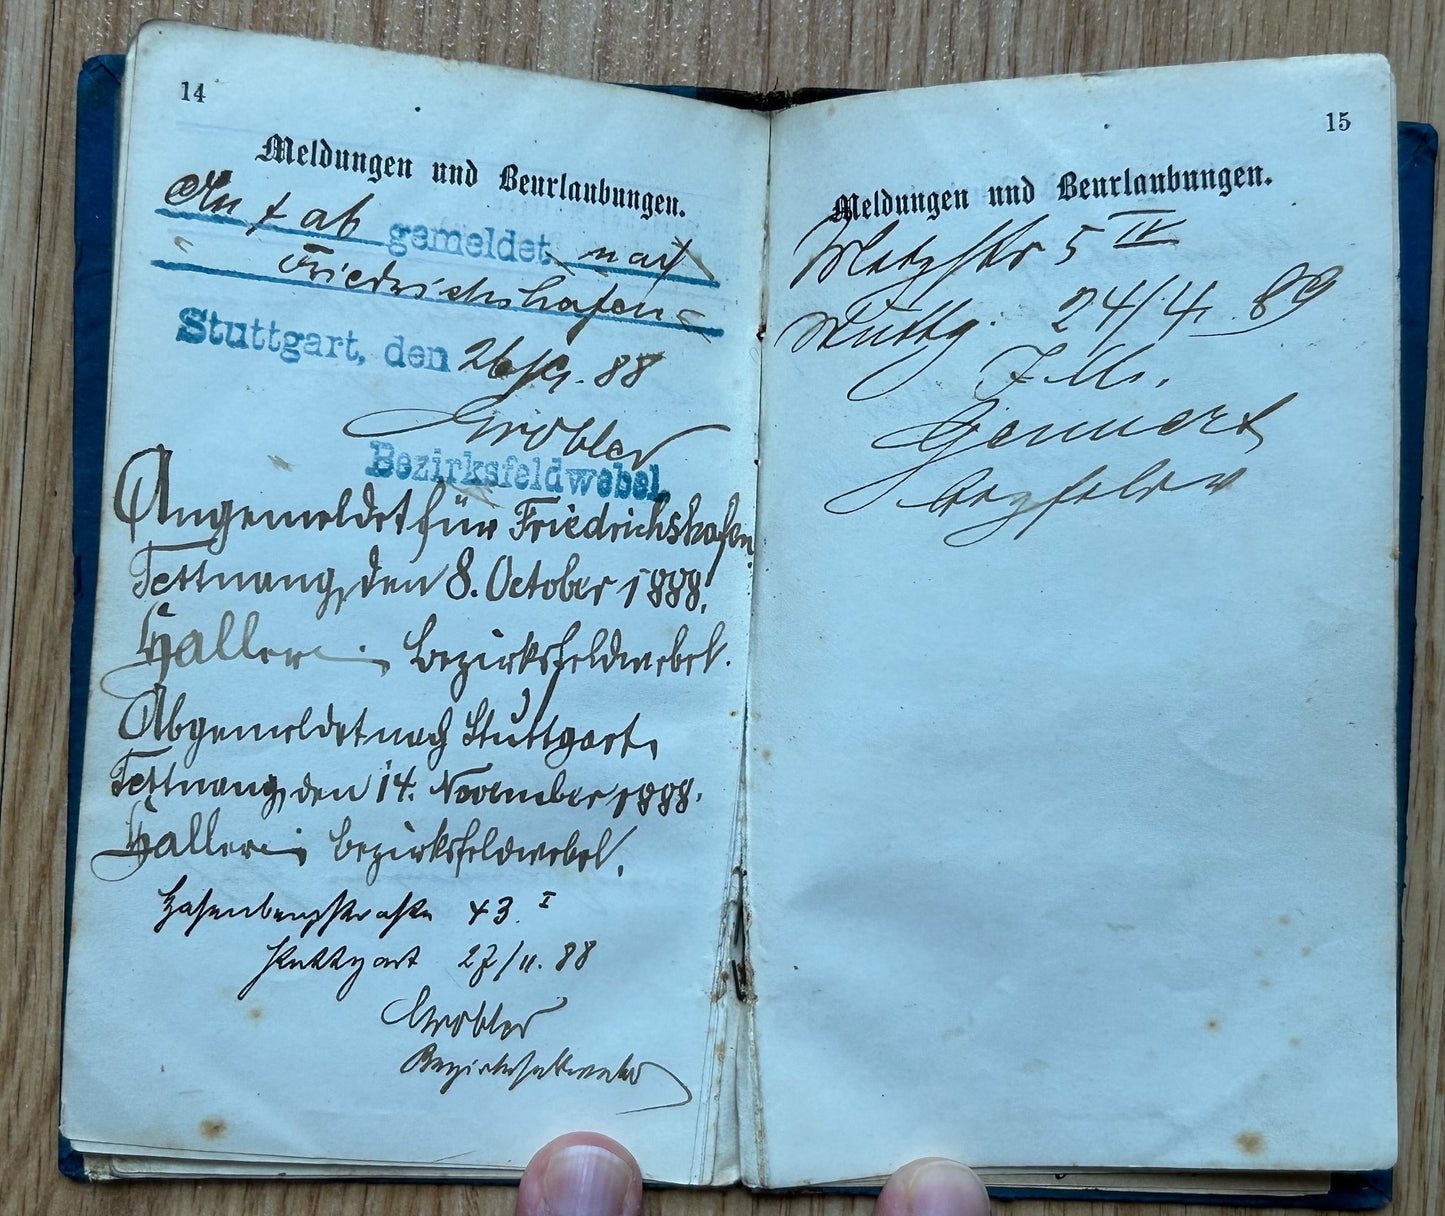 14
Meldungen und Beurlaubungen.
An & ab gemeldet nach
Friedrichshafen
Stuttgart, den 26/9. 88
Gröbler
Bezirksfeldwebel.
Angemeldet für Friedrichshafen
Tettnang, den 8. October 1888.
Haller Bezirksfeldwebel.
Abgemeldet nach Stuttgart,
Tettnang, den 14. November 1888.
Haller Bezirksfeldwebel.
Hasenbergstraße 43. I
Stuttgart 27/11. 88
Gröbler
Bezirksfeldwebel
15
Meldungen und Beurlaubungen.
5 IV
Stuttg. 24/4. 89
Gennert
Bezfeldw